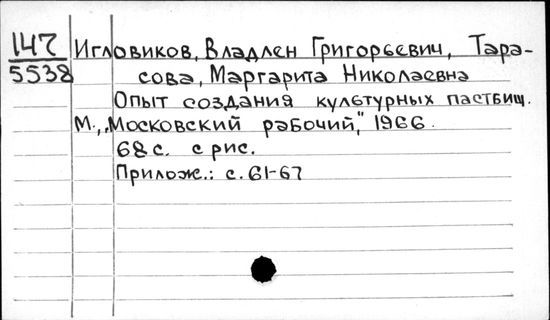 147 Игловиков, Владлен Григорьевич, Тара-
5538 сова, Маргарита Николаевна
Опыт создания культурных пастбищ.
М., „Московский рабочий", 1966.
68 с. с рис.
Прилож.: с. 61-67